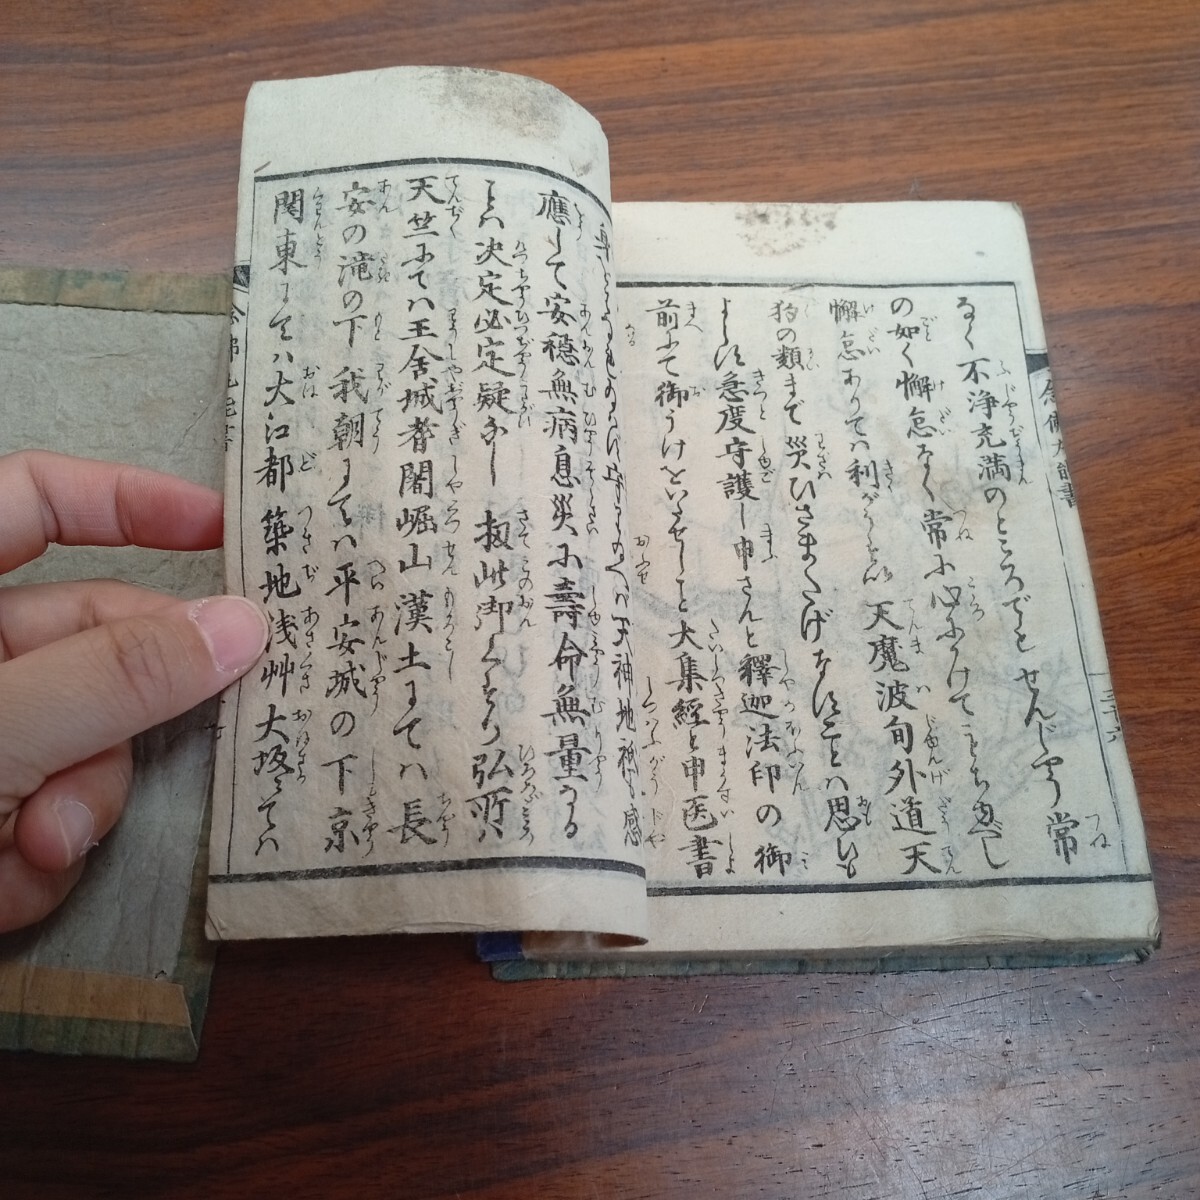 なく不浄充満のところでもせんじやう常
の如く懈怠なく常に心にかけてことちゆべし
懈怠ありてハ利がうとい 天魔波旬外道天
狗の類まで災ひさまたげなすことハ思いも
よらず急度守護し申さんと釋迦法印の御
前にて御うけをいたせしと大集経と申医書
天神地祇も感
應して安穏無病息災に壽命無量なる
ことハ决定必定疑なし 扨此御くすり弘所ハ
天竺にてハ王舎城耆闍崛山漢土にてハ長
安の滝の下 我朝にてハ平安城の下京
関東にてハ大江都築地浅艸大坂にてハ